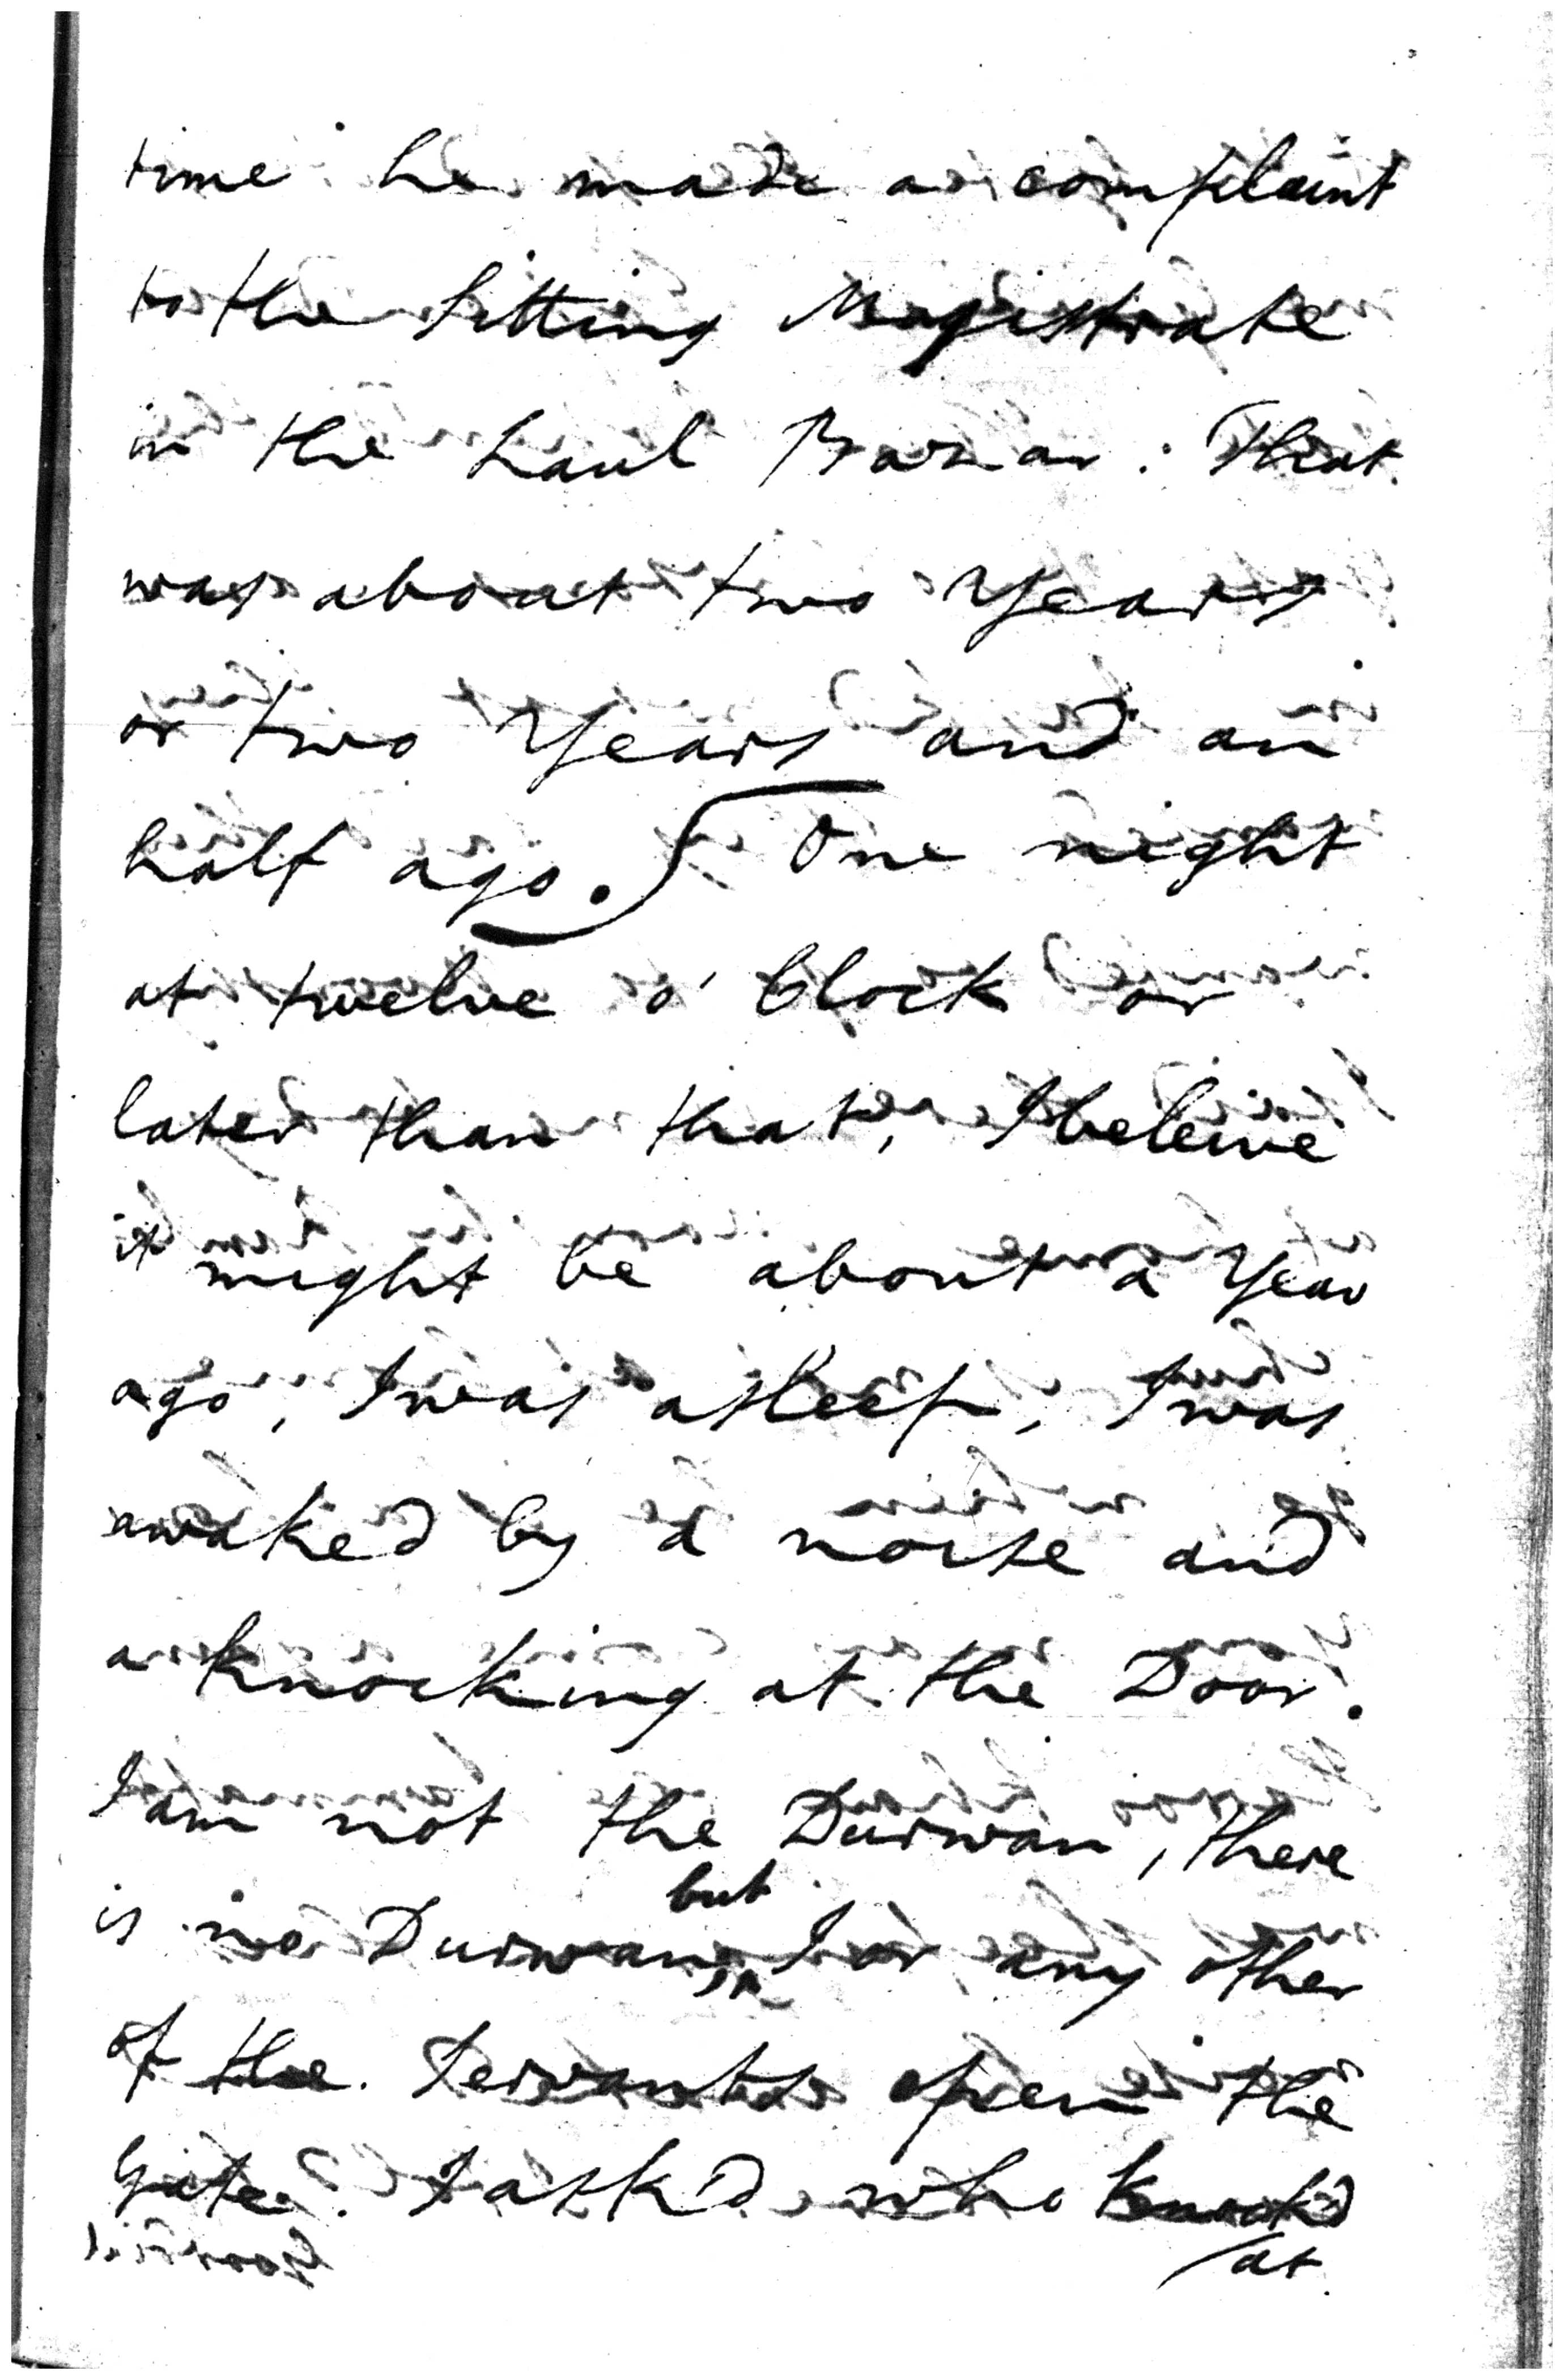 time he made a complaint
to the Sitting Magistrate
in the Laul Bazar: That
was about two Years
or two Years and an
half ago. One night
at twelve o'Clock or
later than that, I beleive
it might be about a Year
ago, I was asleep, I was
awaked by a noise and
a knocking at the Door.
I am not the Durwan, there
is no Durwan, but I or any other
of the Servants open the
Gate. I ask'd who knock'd
at